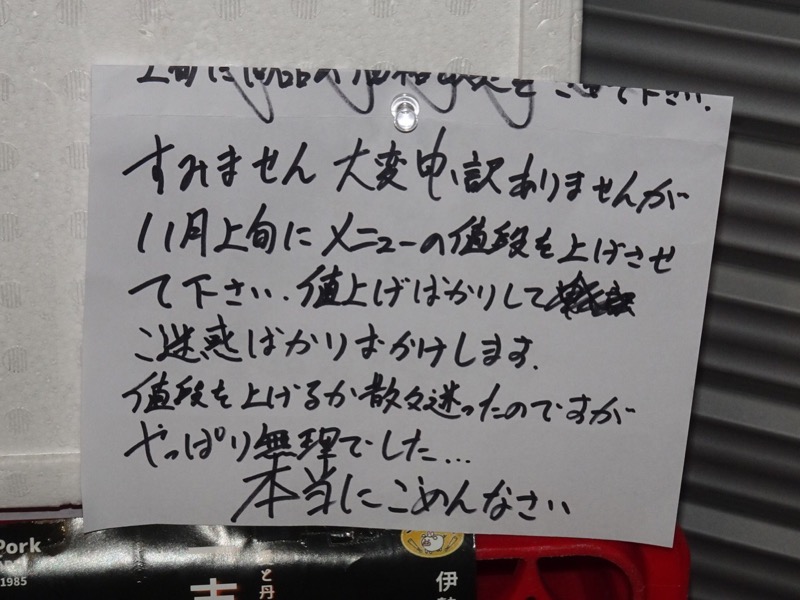 すみません 大変申し訳ありませんが
11月上旬にメニューの値段を上げさせ
て下さい.値上げばかりして
ご迷惑ばかりおかけします.
値段を上げるか散々迷ったのですが
やっぱり無理でした...
本当にごめんなさい
Pork
1985
と丹
伊